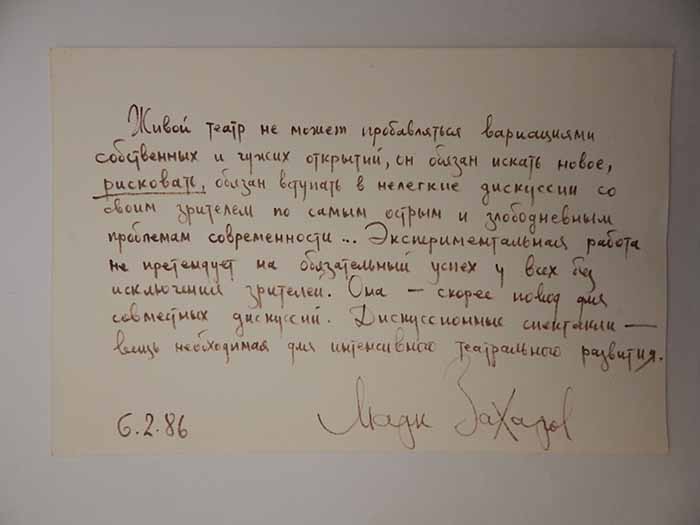 Живой театр не может пробавляться вариациями
собственных и чужих открытий, он обязан искать новое,
рисковать, обязан вступать в нелегкие дискуссии со
своим зрителем по самым острым и злободневным
проблемам современности... Экспериментальная работа
не претендует на обязательный успех у всех без
исключения зрителей. Она — скорее повод для
совместных дискуссий. Дискуссионные спектакли —
вещь необходимая для интенсивного театрального развития.
6.2.86 Марк Захаров